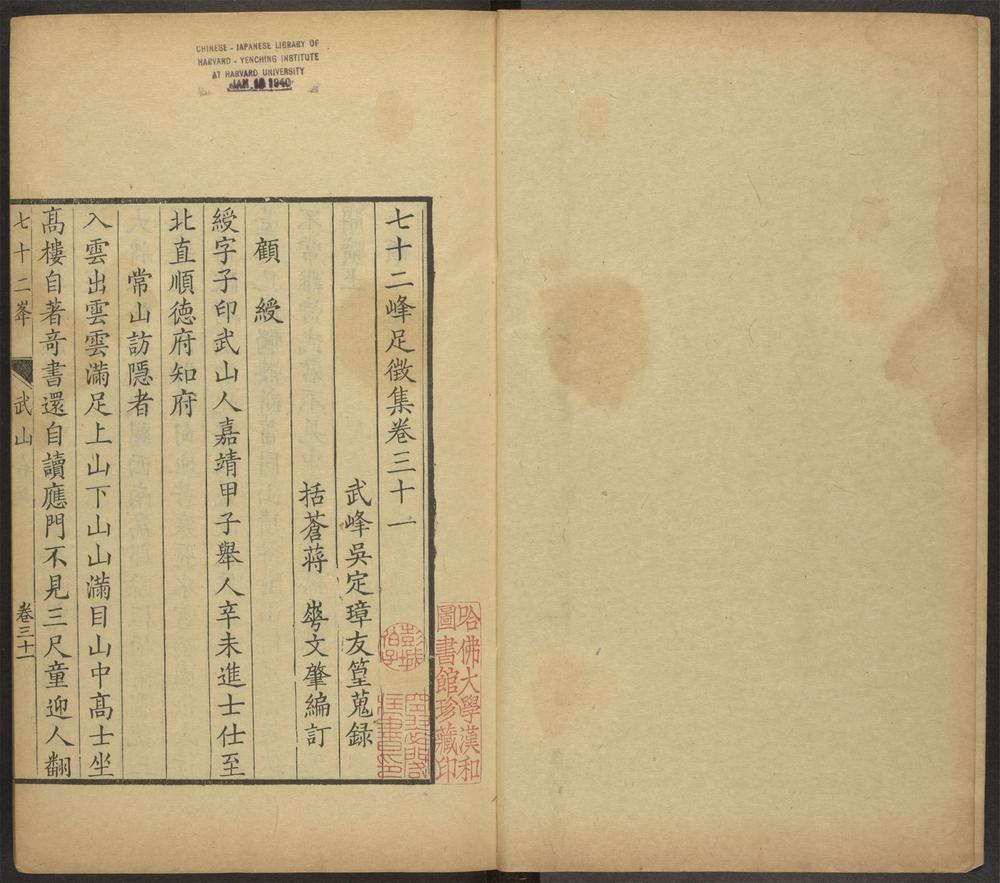 CHINESE - JAPANESE LIBRARY OF
HARVARD - YENCHING INSTITUTE
AT HARVARD UNIVERSITY
JAN 1940
哈佛大學漢和
圖書館珍藏印
七十二峰足徴集卷三十一
武峰吳定璋友篁蒐録
括蒼蔣 文肇編訂
顧綬
綬字子印武山人嘉靖甲子舉人辛未進士仕至
北直順徳府知府
常山訪隱者
入雲出雲雲滿足上山下山山滿目山中髙士坐
髙樓自著竒書還自讀應門不見三尺童迎人翩
七十二峯 武山 卷三十一
彭城